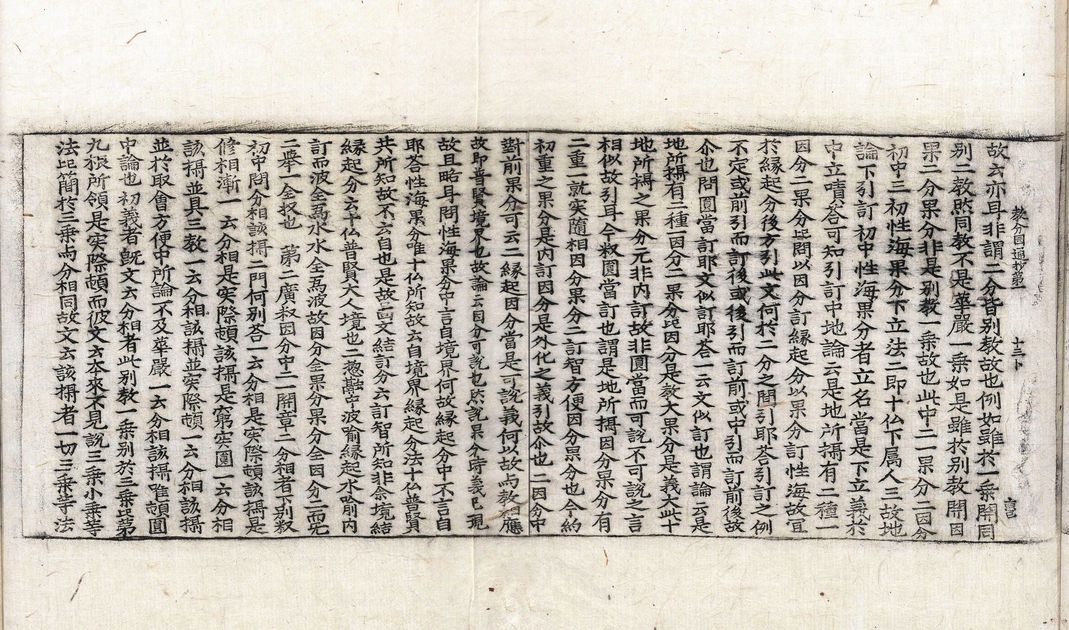 教分記圓通抄第一 十三卜
故云亦耳非謂二分皆別教故也例如雖於一乘開同
別二教然同教不是華嚴一乘如是雖於別教開因
果二分果分非是別教一乘故也此中二一果分二因分
初中三初性海果分下立法二即十仏下属人三故地
論下引訂初中性海果分者立名當是下立義於
中立嘖答可知引訂中地論云是地所攝有二種一
因分二果分此問以因分訂緣起分以果分訂性海故宜
於緣起分後方引此文何於二分之間引耶答引訂之例
不定或前引而訂後或後引而訂前或中引而訂前後故
尒也問圓當訂耶文似訂耶答一云文似訂也謂論云是
地所攝有二種一因分二果分此因分是教大果分是義大此十
地所攝之果分元非內訂故非圓當而可說不可說之言
相似故引耳今釈圓當訂也謂是地所攝因分果分有
二重一就实隨相因分果分二訂智方便因分果分也今約
初重之果分是內訂因分是外化之義引故尒也 二因分中
對前果分可云二緣起因分當是可說義何以故与教相應
故即普賢境界也故論云因分可說也然說果分時義已現
故且略耳問性海果分中言自境界何故緣起分中不言自
耶答性海果分唯十仏所知故云自境界緣起分法十仏普賢
共所知故不云自也是故古文結訂分云訂智所知非余境結
緣起分云十仏普賢大人境也二摠融中波喻緣起水喻內
訂而波全爲水水全爲波故因分全果分果分全因分二而无
二舉一全収也 第二廣釈因分中二一開章二分相者下別釈
初中問分相該攝二門何別答一云分相是实際頓該攝是
修相漸一云分相是实際頓該攝是窮实圓一云分相
該攝並具三教一云分相該攝並实際頓一云分相該攝
並於取會方便中所論不及華嚴一云分相該攝唯頓圓
中論也初義者既文云分相者此別教一乘別於三乘
法比簡於三乘与分相同故文云該攝者一切三乘等法